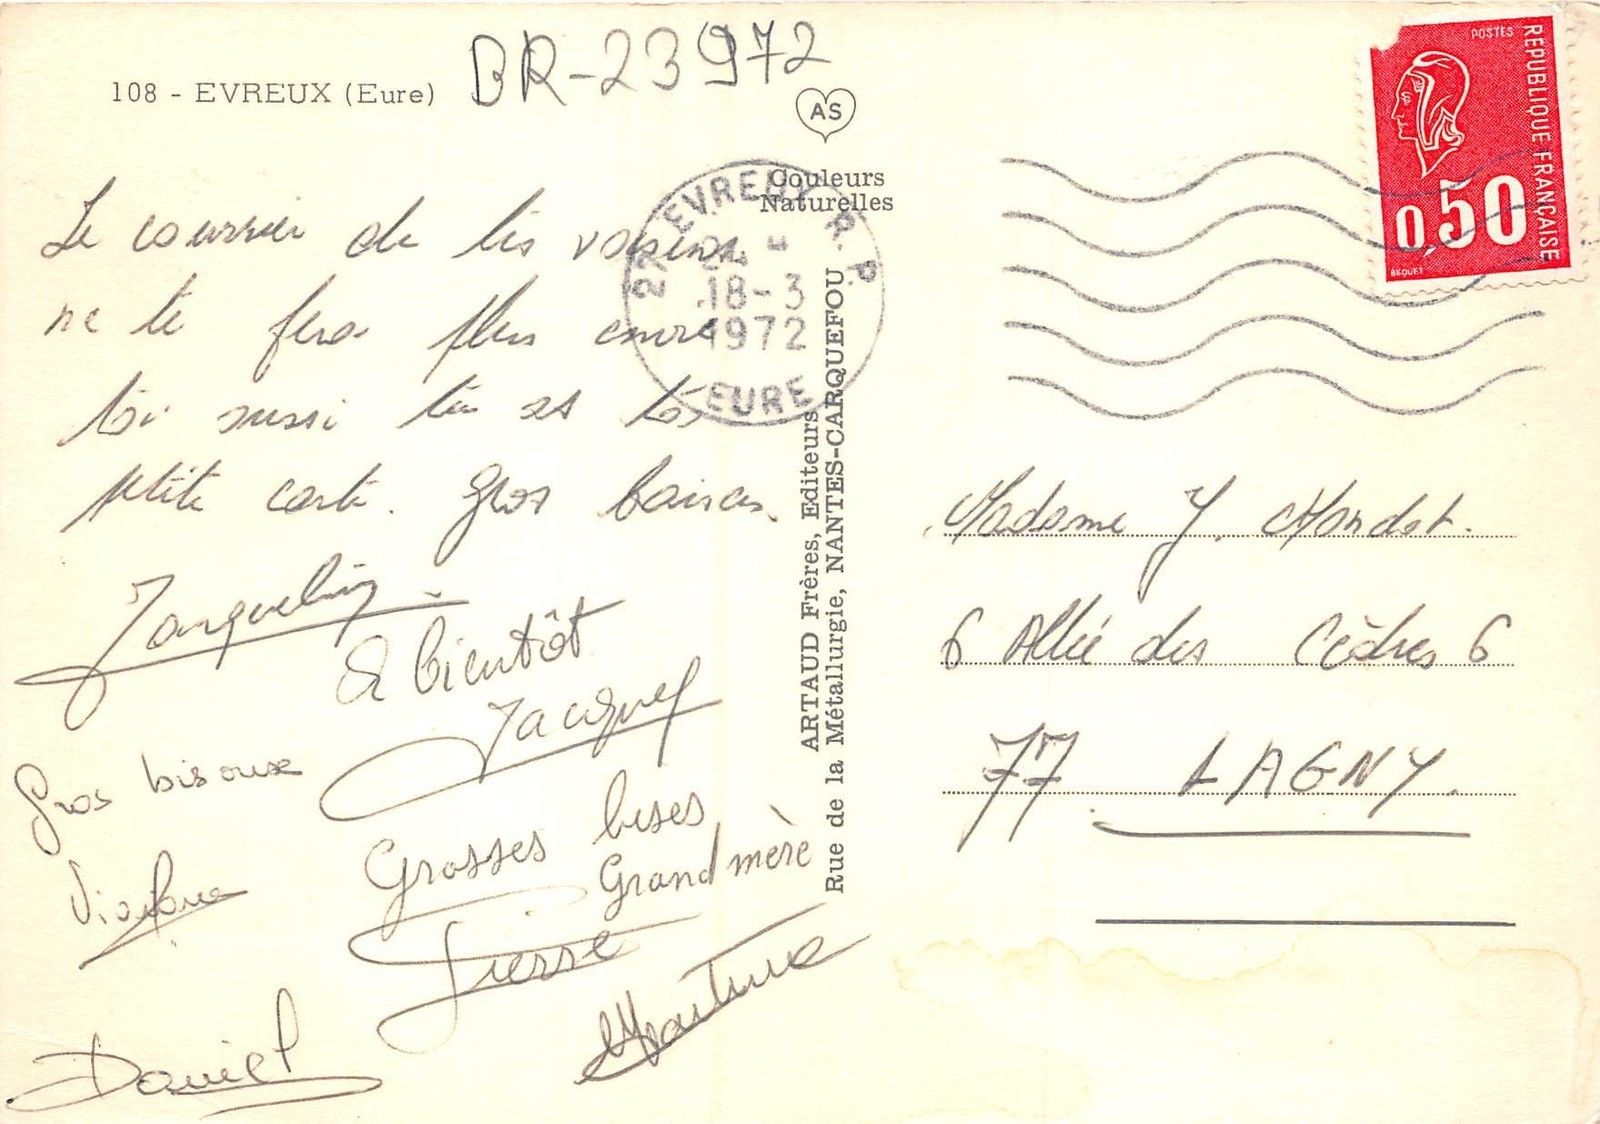 108 - EVREUX (Eure)
BR-23972
AS
Couleurs
Naturelles
27 EVREUX R.P.
18-3
1972
EURE
POSTES
REPUBLIQUE FRANÇAISE
0,50
BEQUET
Le courrier de tes voisins
ne te fera plus envie
toi aussi tu as ta
petite carte. Gros baisers.
Jacqueline
A bientôt
Jacques
Gros bisoux
Grosses bises
Grand mère
Pierre
Martine
Daniel
ARTAUD Frères, Editeurs
Rue de la Métallurgie, NANTES-CARQUEFOU
Madame J. Mondot.
6 Allée des Cèdres 6
77 LAGNY.